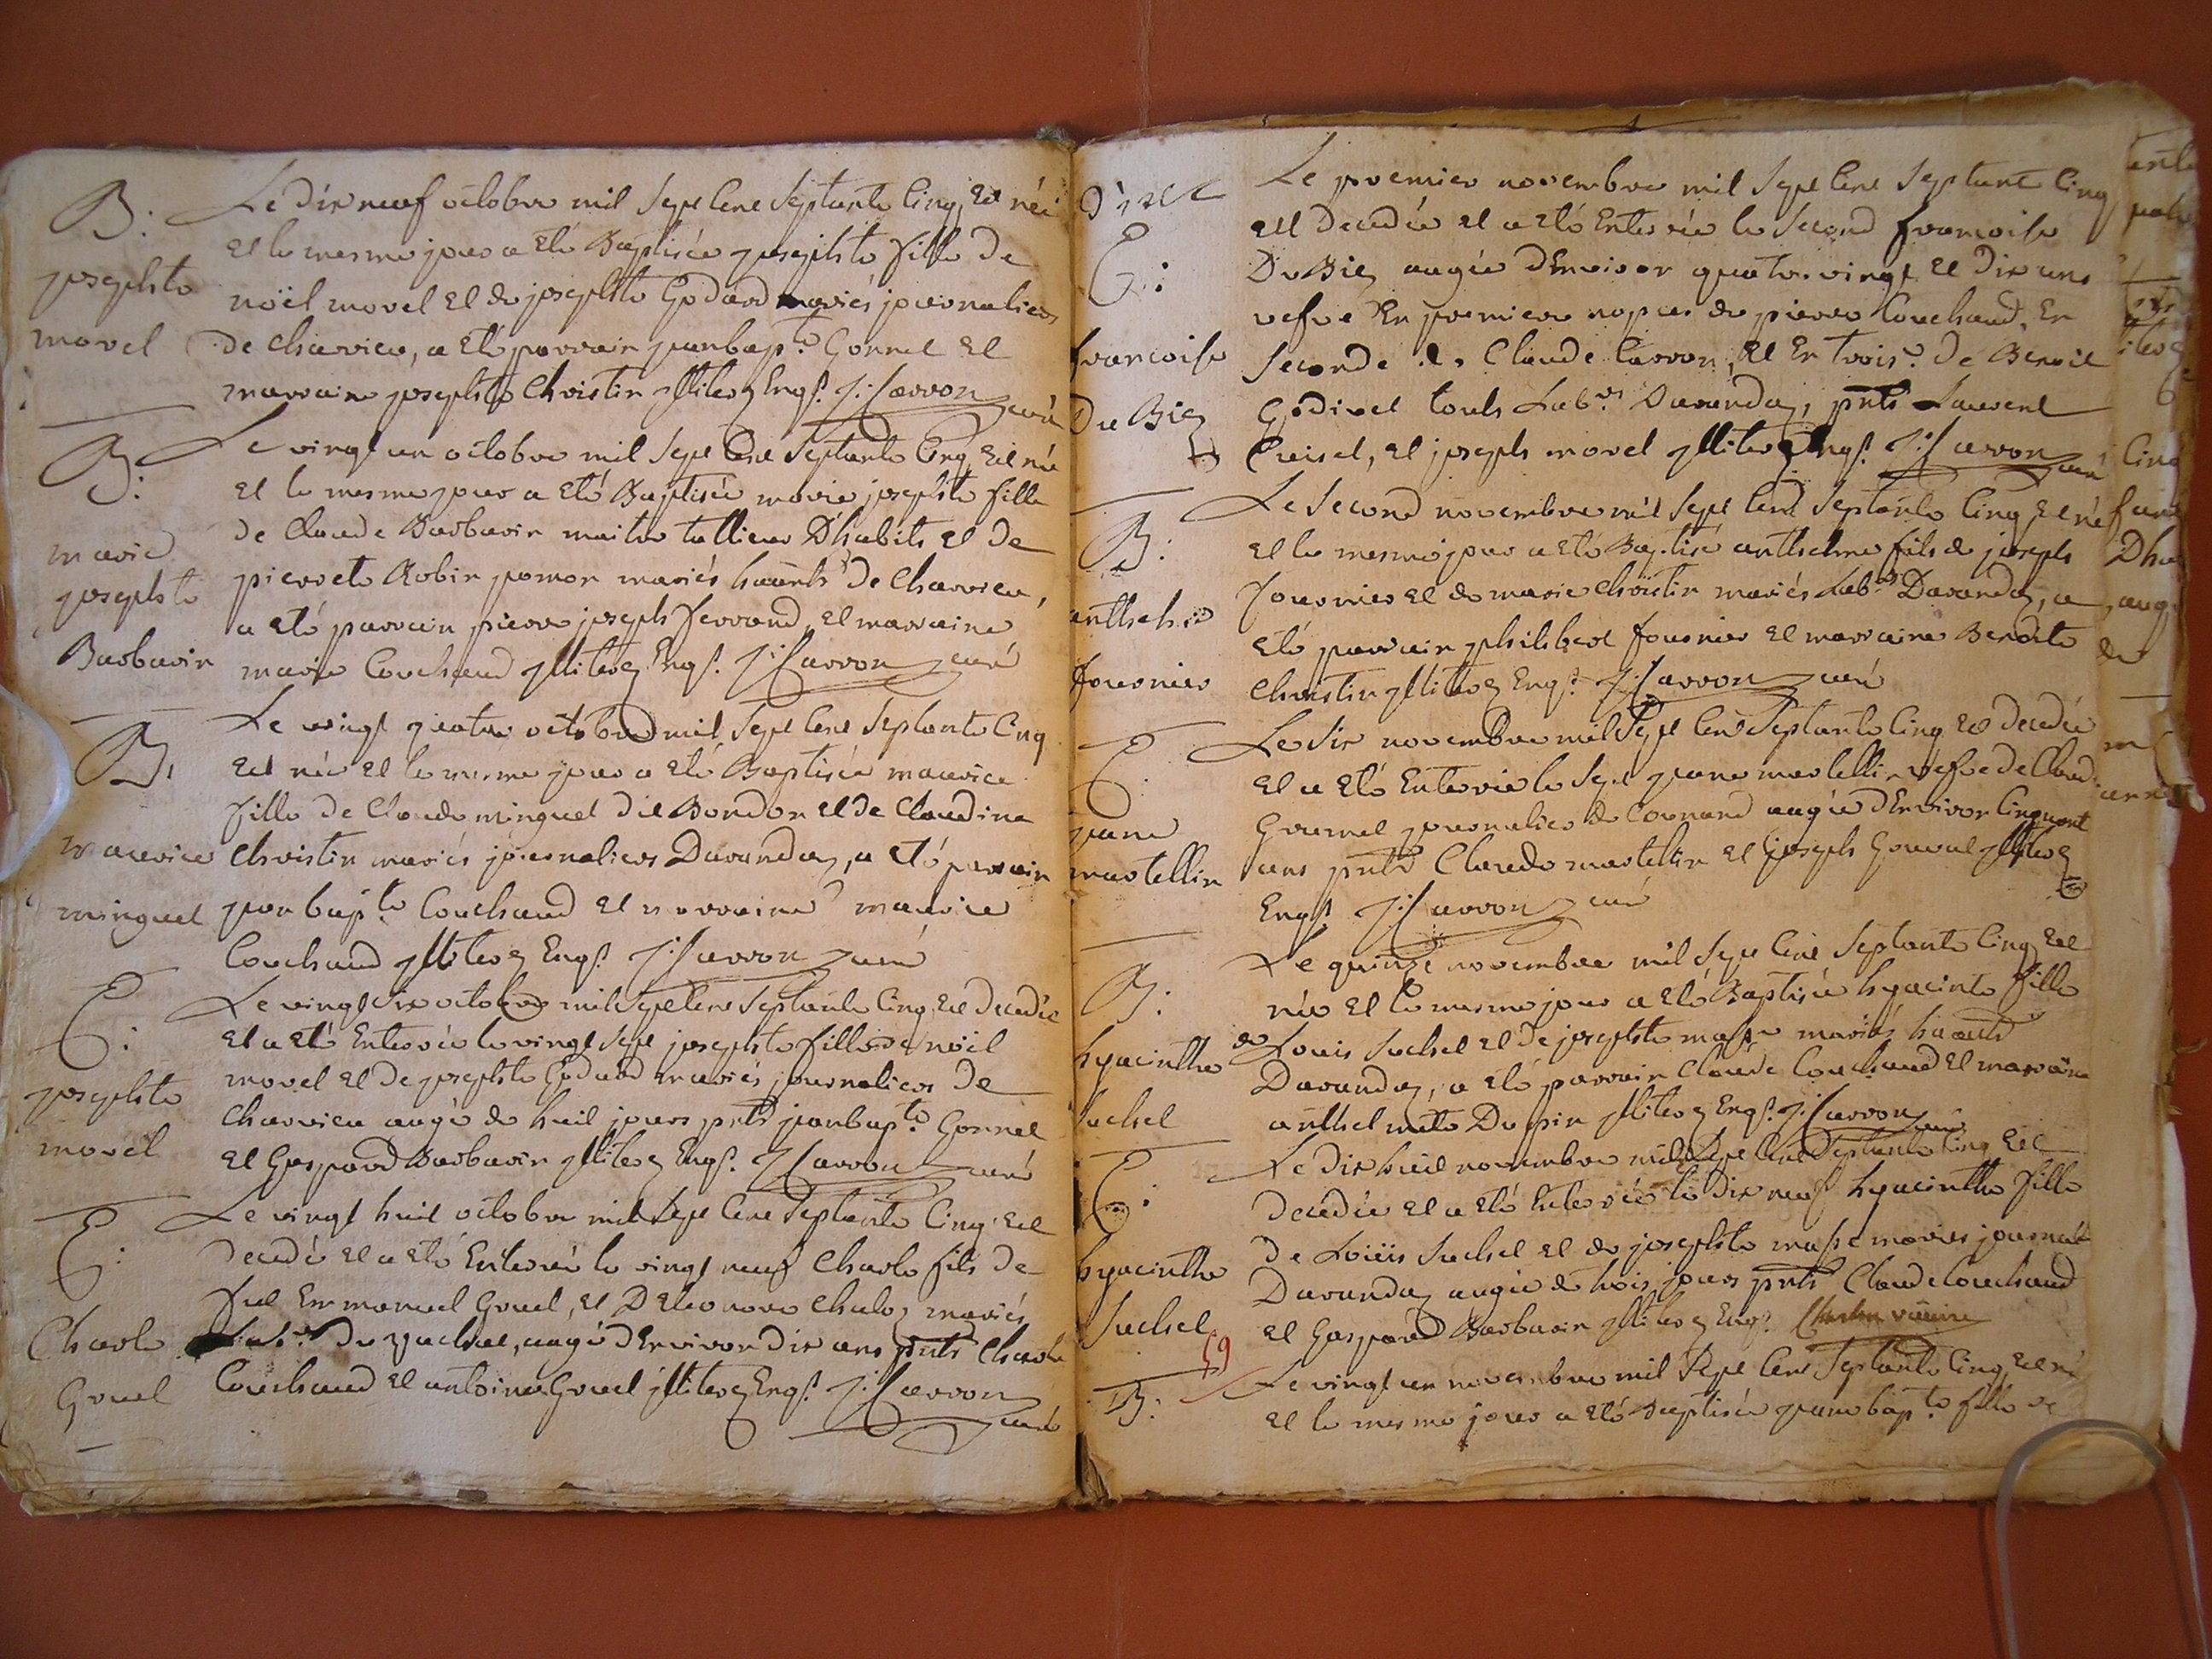 B:
josephte
morel
Le dix neuf octobre mil sept cent septante cinq, est née
et le mesme jour a eté Baptisée josephte fille de
noël morel et de josephte Godard mariés journaliers
de charvieu, a eté parrain jeanbapte. Gonnet et
marraine josephte Christin illiters Enqs. J: Carron curé
B:
marie
josephte
Barbarin
Le vingt un octobre mil sept cent septante cinq est née
et le mesme jour a eté Baptisée marie josephte fille
de Claude Barbarin maitre tallieur D'habits et de
pierrete Robin mariés de Charvieu,
a eté parrain pierre joseph ferrand, et marraine
marie Couchaud illiters Enqs. J: Carron curé
B:
maurice
minguet
Le vingt quatre octobre mil sept cent septante cinq
est née et le mesme jour a eté Baptisée maurice
fille de Claude minguet dit Bondon et de Claudine
Christin mariés journaliers Daranday, a eté parrain
jeanbapte. Couchaud et marraine maurice
Couchaud illiters Enqs. J: Carron curé
E:
josephte
morel
Le vingt six octobre mil sept cent septante cinq est decedée
et a eté Enterrée le vingt sept josephte fille de noël
morel et de josephte Godard mariés journaliers de
charvieu augée de huit jours pnts jeanbapte. Gonnet
et Gaspard Barbarin illiters Enqs. J: Carron curé
E:
Charle
Gruel
Le vingt huit octobre mil sept cent septante cinq est
decedé et a eté Enterré le vingt neuf Charle fils de
fut Emmanuel Gruel, et D'Eleonore mariés
augé d'Environ dix ans pnts Charle
Couchaud et antoine Gruel illiters Enqs. J: Carron
curé
E:
francoise
Du Bies
Le premier novembre mil sept cent septante cinq
est decedée et a eté Enterrée le second francoise
Du Bies augée d'Environ quatre vingt et dix ans
vefve En premiere nopces de pierre Couchaud, En
seconde de Claude Carron, et En trois.e de Benoit
Godinet touts Labrs Daranday, pnts Laurent
et joseph morel illiters Enqs. J: Carron curé
B:
anthelme
fournier
Le second novembre mil sept cent septante cinq, est né
et le mesme jour a eté Baptisé anthelme fils de joseph
fournier et de marie christin mariés Labrs Daranday, a
eté parrain philibert fournier et marraine Benoite
Christin illiters Enqs. J: Carron curé
E:
jeane
martellin
Le six novembre mil sept cent septante cinq est decedée
et a eté Enterrée le sept jeane martellin vefve de Claude
journalier de augée d'Environ cinquant
ans pnts Claude martellin et joseph illiters
Enqs. J: Carron curé
B:
hyacinthe
Suchet
Le quinze novembre mil sept cent septante cinq est
née et le mesme jour a eté Baptisée hyacinte fille
de Louis Suchet et de josephte masse mariés
Daranday, a eté parrain Claude Couchaud et marraine
anthelmete Dupin illiters Enqs. J: Carron curé
E:
hyacinthe
Suchet
Le dix huit novembre mil sept cent septante cinq est
decedée et a eté Enterrée le dix neuf hyacinthe fille
de Loüis Suchet et de josephte masse mariés journal
Daranday augée de trois jours pnts Claude Couchaud
et Gaspard Barbarin illiters Enqs. vicaire
59
B:
Le vingt un novembre mil sept cent septante cinq, est né
et le mesme jour a eté Baptisée jeane bapte. fille de